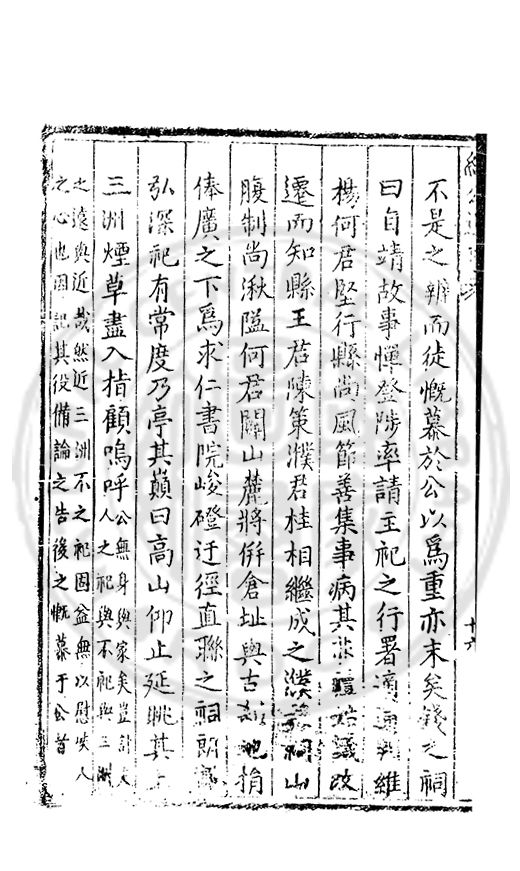 不是之辨而徒慨慕於公以為重亦末矣錢之祠
曰自靖故事憚登陟率請主祀之行署適通判維
楊何君堅行縣尚風節善集事病其非禮始議改
遷而知縣王君陳策濮君桂相繼成之濮祠山
腹制尚湫隘何君闢山麓將併倉址與古剎地捐
俸廣之下為求仁書院峻磴迂徑直聯之祠
弘深祀有常度乃亭其巔曰高山仰止延眺其
三洲煙草盡入指顧嗚呼公無身與家矣豈計夫
人之祀與不祀與三洲
之遠與近哉然近三洲不之祀固益無以慰咲人
之心也因記其役備論之告後之慨慕于公首
十六